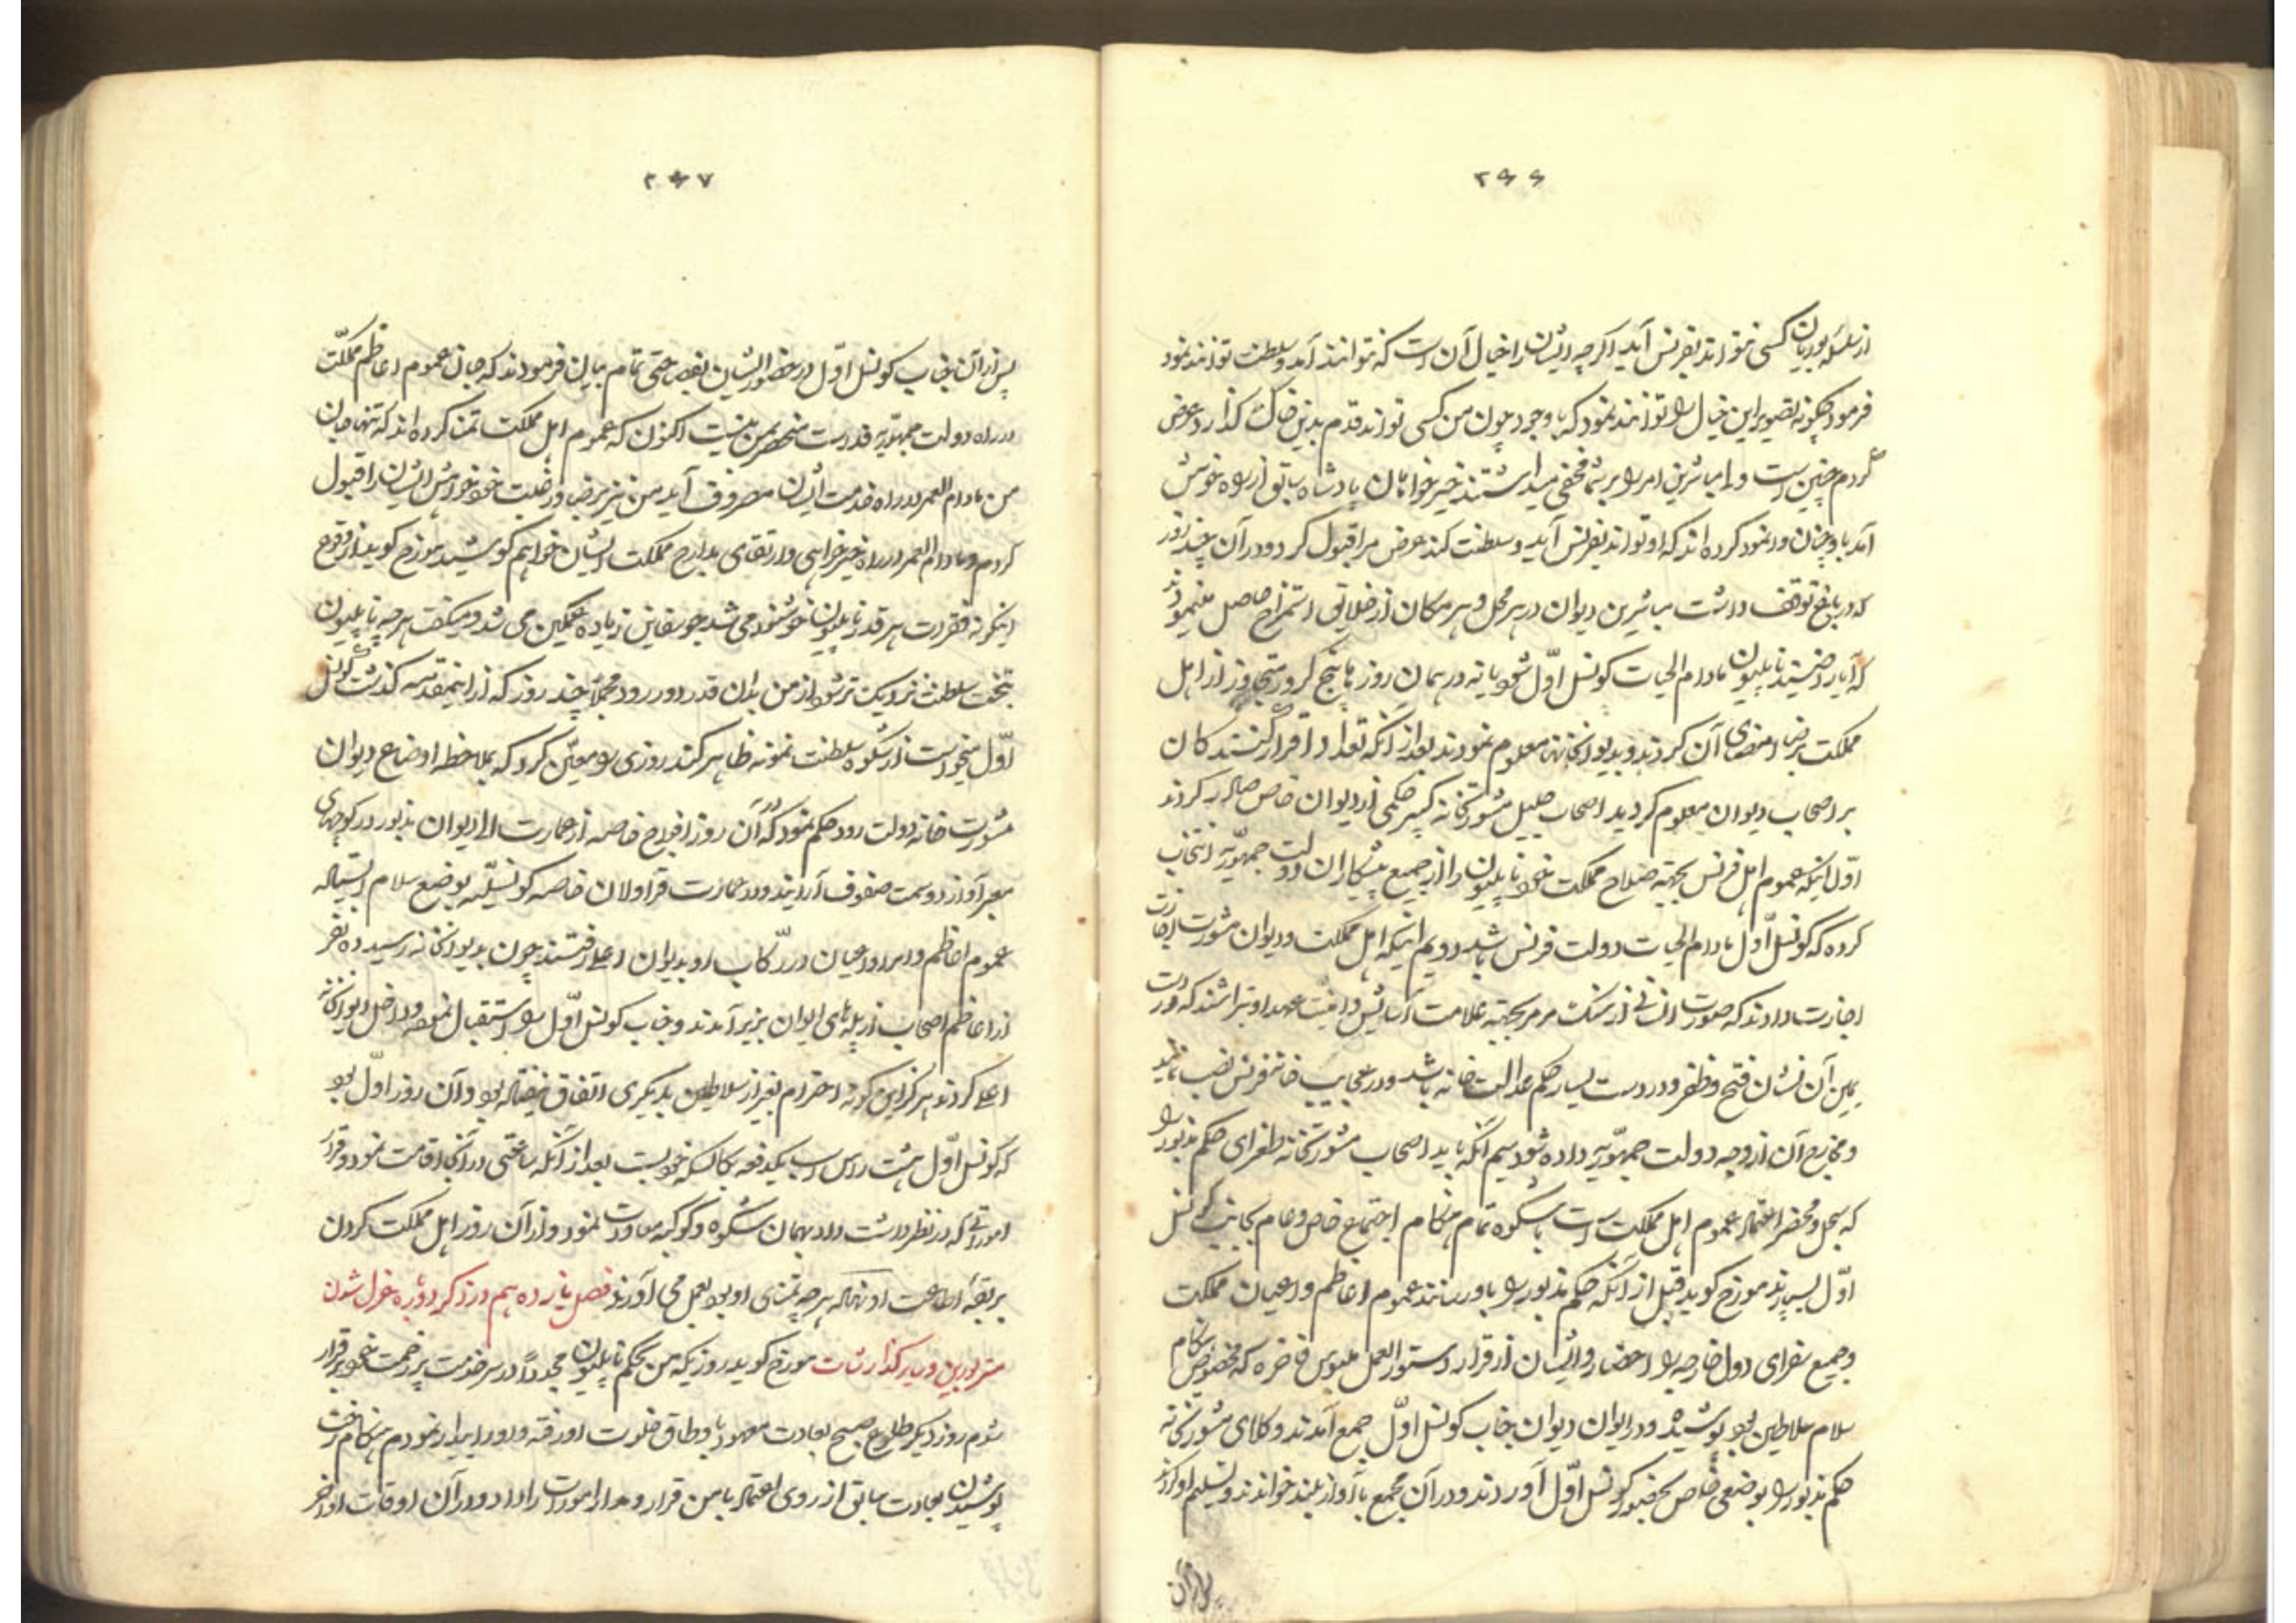 ۲۶۶
از سلسله بوربان کسی نتواند بفرنس آید اگرچه ایشان را خیال آن است که توانند آمد و سلطنت توانند نمود
فرمود چگونه تصویر این خیال را توانند نمود که با وجود چون من کسی تواند قدم بدین خاک گذارد عرض
کردم چنین است و اما مباشرین امر را بر شما مخفی میداشتند خیرخواهان پادشاه سابق از راه خویش
آمد با وچنان وانمود کرده اند که او تواند بفرنس آید و سلطنت کند عرض مرا قبول کرد و در آن چند روز
که در باغ توقف داشت مباشرین دیوان در هر محل و هر مکان از خلایق استمزاج حاصل مینمودند
که آیا راضیند ناپلیون مادام الحیات کونسل اوّل شود یا نه در همان روزها پنج کرور متجاوز از اهل
مملکت برضا امضای آن کردند و بدیوانخانه معلوم نمودند بعد از آنکه تعداد اقرار کنندکان
بر اصحاب دیوان معلوم کردید اصحاب جلیل مشورتخانه کبیر حکمی از دیوان خاص صادر کردند
اوّل اینکه عموم اهل فرنس بجهته صلاح مملکت خود ناپلیون را از جمیع پیشکاران دولت جمهوریّه انتخاب
کرده که کونسل اوّل مادام الحیات دولت فرنس باشد دویم اینکه اهل مملکت و دیوان مشورت اجازت
اجازت دادند که صورت انسانی از سنک مرمر بجهته علامت آسایش و امنیّت عهد او بتراشند که در دست
یمین آن نشان فتح و ظفر و در دست یسار حکم عدالت خانه باشد و در عجایب خانه فرنس نصب نمایند
و مخارج آن از وجه دولت جمهوریّه داده شود سیم آنکه باید اصحاب مشورتخانه طغرای حکم مذبور را
که سجل و محضر اعتماد عموم اهل مملکت است با شکوه تمام هنکام اجتماع خاص و عام بجانب کونسل
اوّل بسپارند مورخ کوید قبل از آنکه حکم مذبور را باو رسانند عموم اعاظم و اعیان مملکت
و جمیع سفرای دول خارجه را احضار و ایشان از قرار دستورالعمل ملبوس فاخره که مخصوص هنکام
سلام سلاطین بود پوشیده و در ایوان دیوان جناب کونسل اوّل جمع آمدند و کلای مشورتخانه
حکم مذبور را بوضعی خاص بحضور کونسل اوّل آوردند و در آن مجمع بآواز بلند خواندند و تسلیم او کردند
پس از آن
۲۶۷
پس از آن جناب کونسل اوّل در حضور ایشان بفصاحتی تمام بیان فرمودند که جان عموم اعاظم مملکت
در راه دولت جمهوریّه فدا است منحصر بمن نیست اکنون که عموم اهل مملکت تمنا کرده اند که تنها جان
من مادام العمر در راه خدمت ایشان مصروف آید من نیز برضا و رغبت خود خواهش ایشان را قبول
کردم و مادام العمر در راه خیرخواهی و ارتقای مدارج مملکت ایشان خواهم کوشید مورخ کوید از وقوع
اینکونه فقرات هر قدر ناپلیون خوشنود می شد جوسفاین زیاده غمکین می شد و میکفت هرچه ناپلیون
بتخت سلطنت نزدیک تر شود از من بدان قدر دور رود مجملاً چند روز که از این مقدمه کذشت کونسل
اوّل میخواست از شکوه سلطنت نمونه ظاهر کند روزی را معیّن کرد که بملاحظه اوضاع دیوان
مشورت خانه دولت رود حکم نمود که در آن روز افواج خاصه از عمارت الی دیوان مذبور در کوچهای
معبر او از دو سمت صفوف آرایند و در عمارت قراولان خاصه کونسلیّه بوضع سلام ایستاده
عموم اعاظم و امرا و اعیان در رکاب او بدیوان اعلی رفتند چون بدیوانخانه رسید ده نفر
از اعاظم اصحاب از پله های ایوان بزیر آمدند و جناب کونسل اوّل را استقبال نموده داخل دیوانخانه
اعلی کردند هرگز این کونه احترام بغیر از سلاطین بدیکری اتفاق نیفتاده بود و آن روز اوّل بود
که کونسل اوّل هشت راس اسب یکدفعه بکالسکه خود بست بعد از آنکه ساعتی در آنجا اقامت نمود و قرار
اموراتی که در نظر داشت داد بهمان شکوه و کوکبه معاودت نمود و از آن روز اهل مملکت کردن
بربقه اطاعت او نهاده هرچه تمنای او بود بعمل می آوردند فصل یازدهم در ذکر دوباره عزل شدن
مستر بورین و سایر کذارشات مورخ کوید روزیکه من بحکم ناپلیون مجدداً در سر خدمت پرزحمت خود برقرار
شدم روز دیکر طلوع صبح بعادت معهود باوطاق خلوت او رفته و او را بیدار نمودم هنکام رخت
پوشیدن بعادت سابق از روی اعتماد با من قرار و مدار امورات را داد و در آن اوقات اواخر